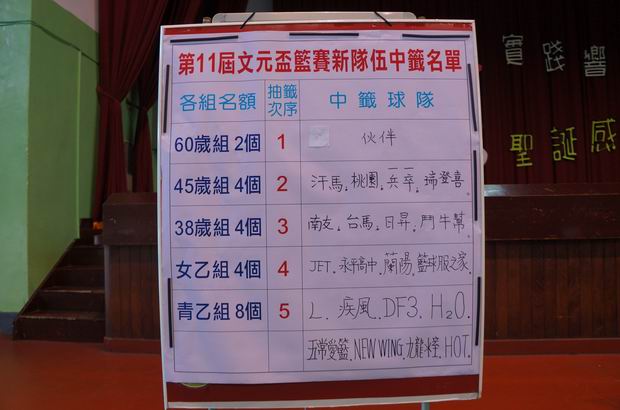 第11屆文元盃籃賽新隊伍中籤名單
各組名額 抽籤次序 中籤球隊
60歲組 2個 1 伙伴
45歲組 4個 2 汗馬.桃園.兵卒.瑞登喜
38歲組 4個 3 南友.台馬.日昇.鬥牛幫.
女乙組 4個 4 JET.永平高中.蘭陽.籃球服之家.
青乙組 8個 5 L.疾風.DF3.H₂O.
五常愛籃.NEW WING.九龍水箱.HOT.
實踐響
聖誕感